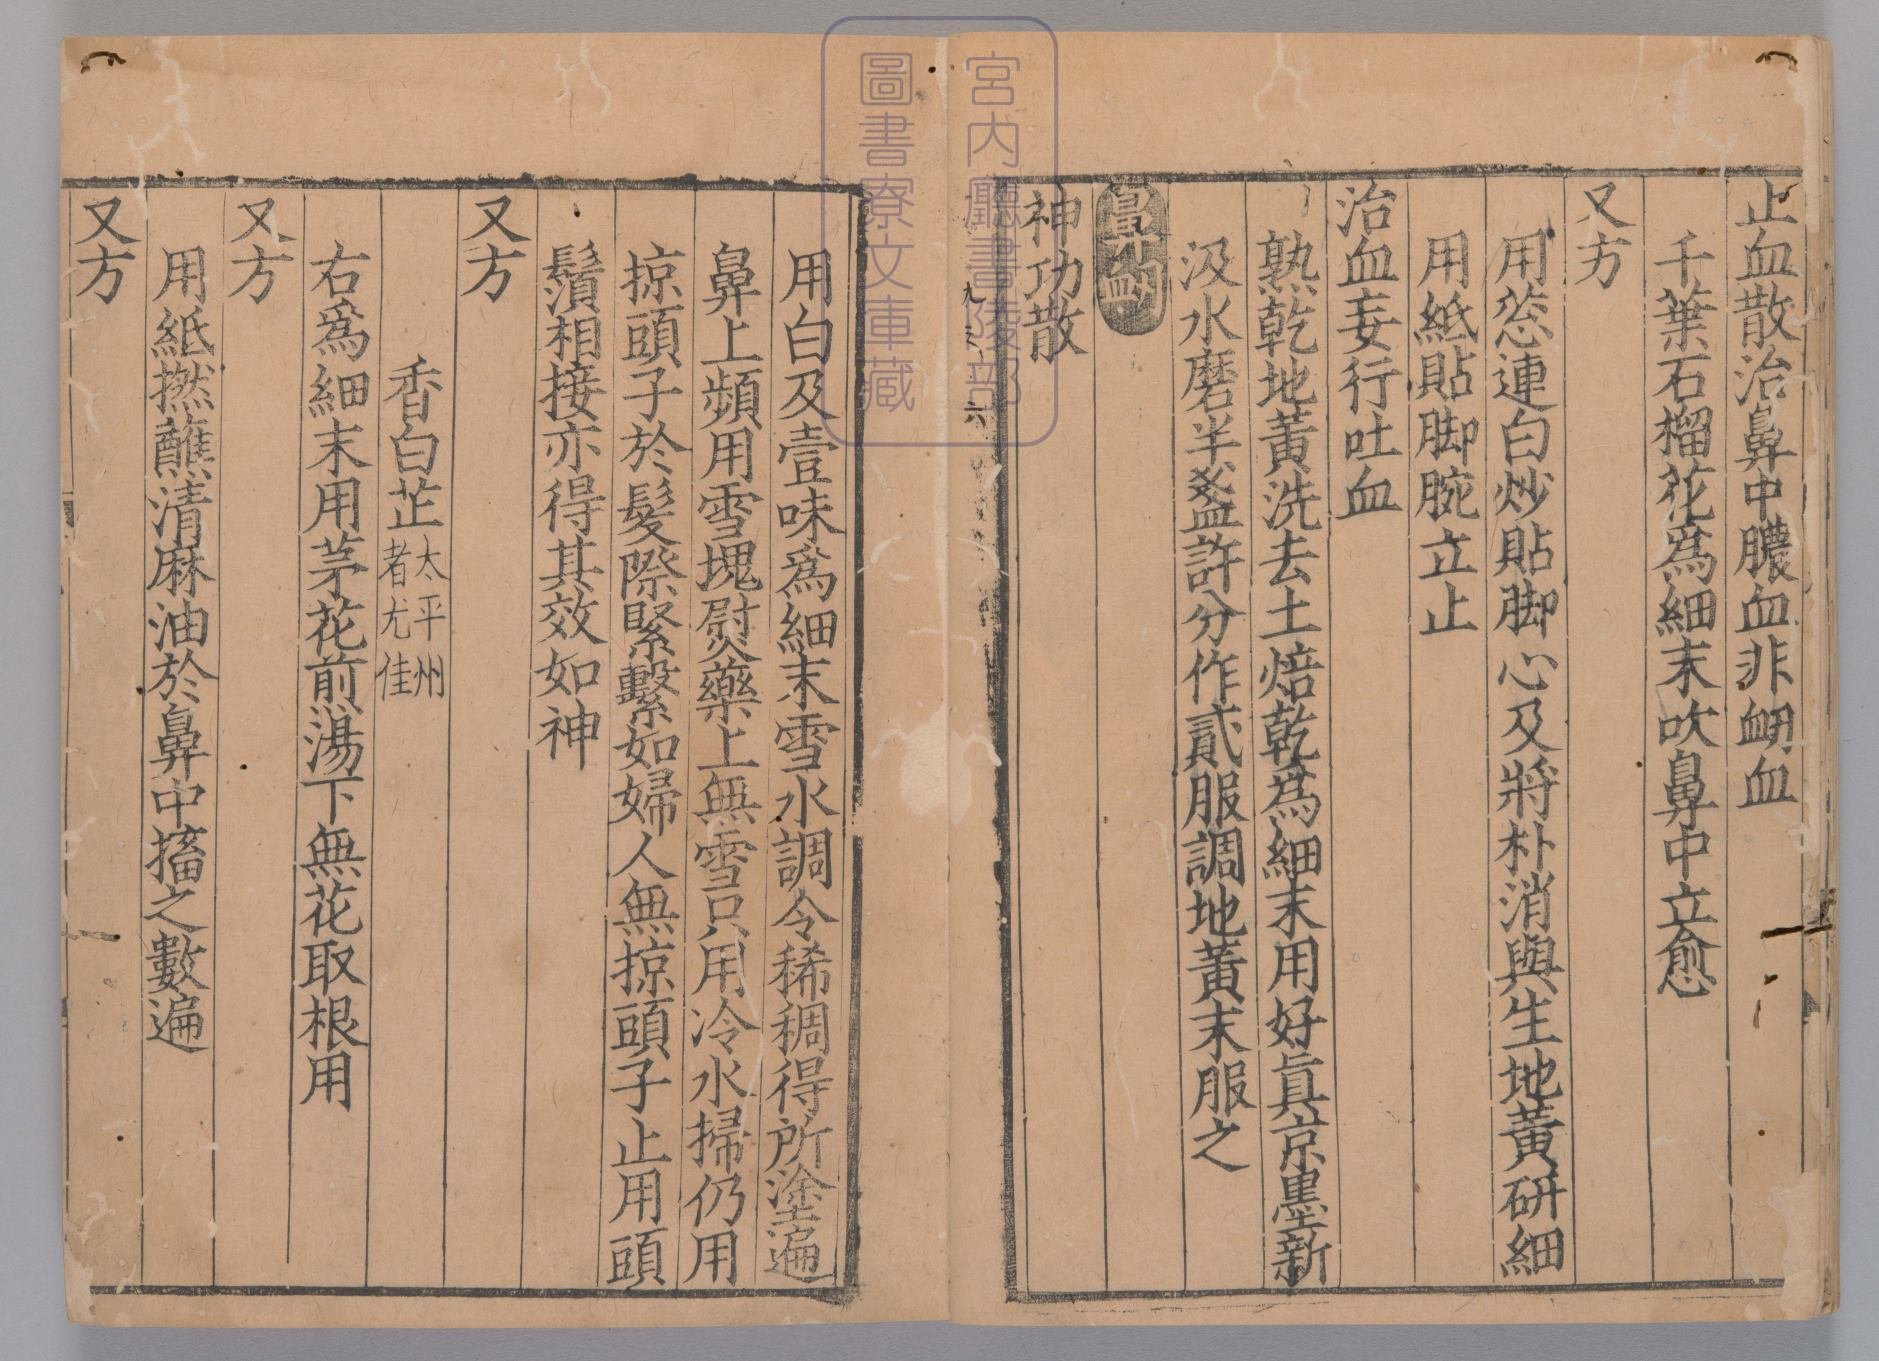 止血散治鼻中膿血非衂血
千葉石榴花爲細末吹鼻中立愈
又方
用葱連白炒貼脚心及將朴消與生地黃研細
用紙貼脚腕立止
治血妄行吐血
熟乾地黃洗去土焙乾爲細末用好眞京墨新
汲水磨半盞許分作貳服調地黃末服之
鼻衂
神功散
用白及壹味爲細末雪水調令稀稠得所塗遍
鼻上頻用雪塊熨藥上無雪只用冷水掃仍用
掠頭子於髮際緊繫如婦人無掠頭子止用頭
鬚相接亦得其效如神
又方
香白芷太平州者尤佳
右爲細末用茅花煎湯下無花取根用
又方
用紙撚蘸清麻油於鼻中搐之數遍
又方
宮内廳書陵部
圖書寮文庫藏